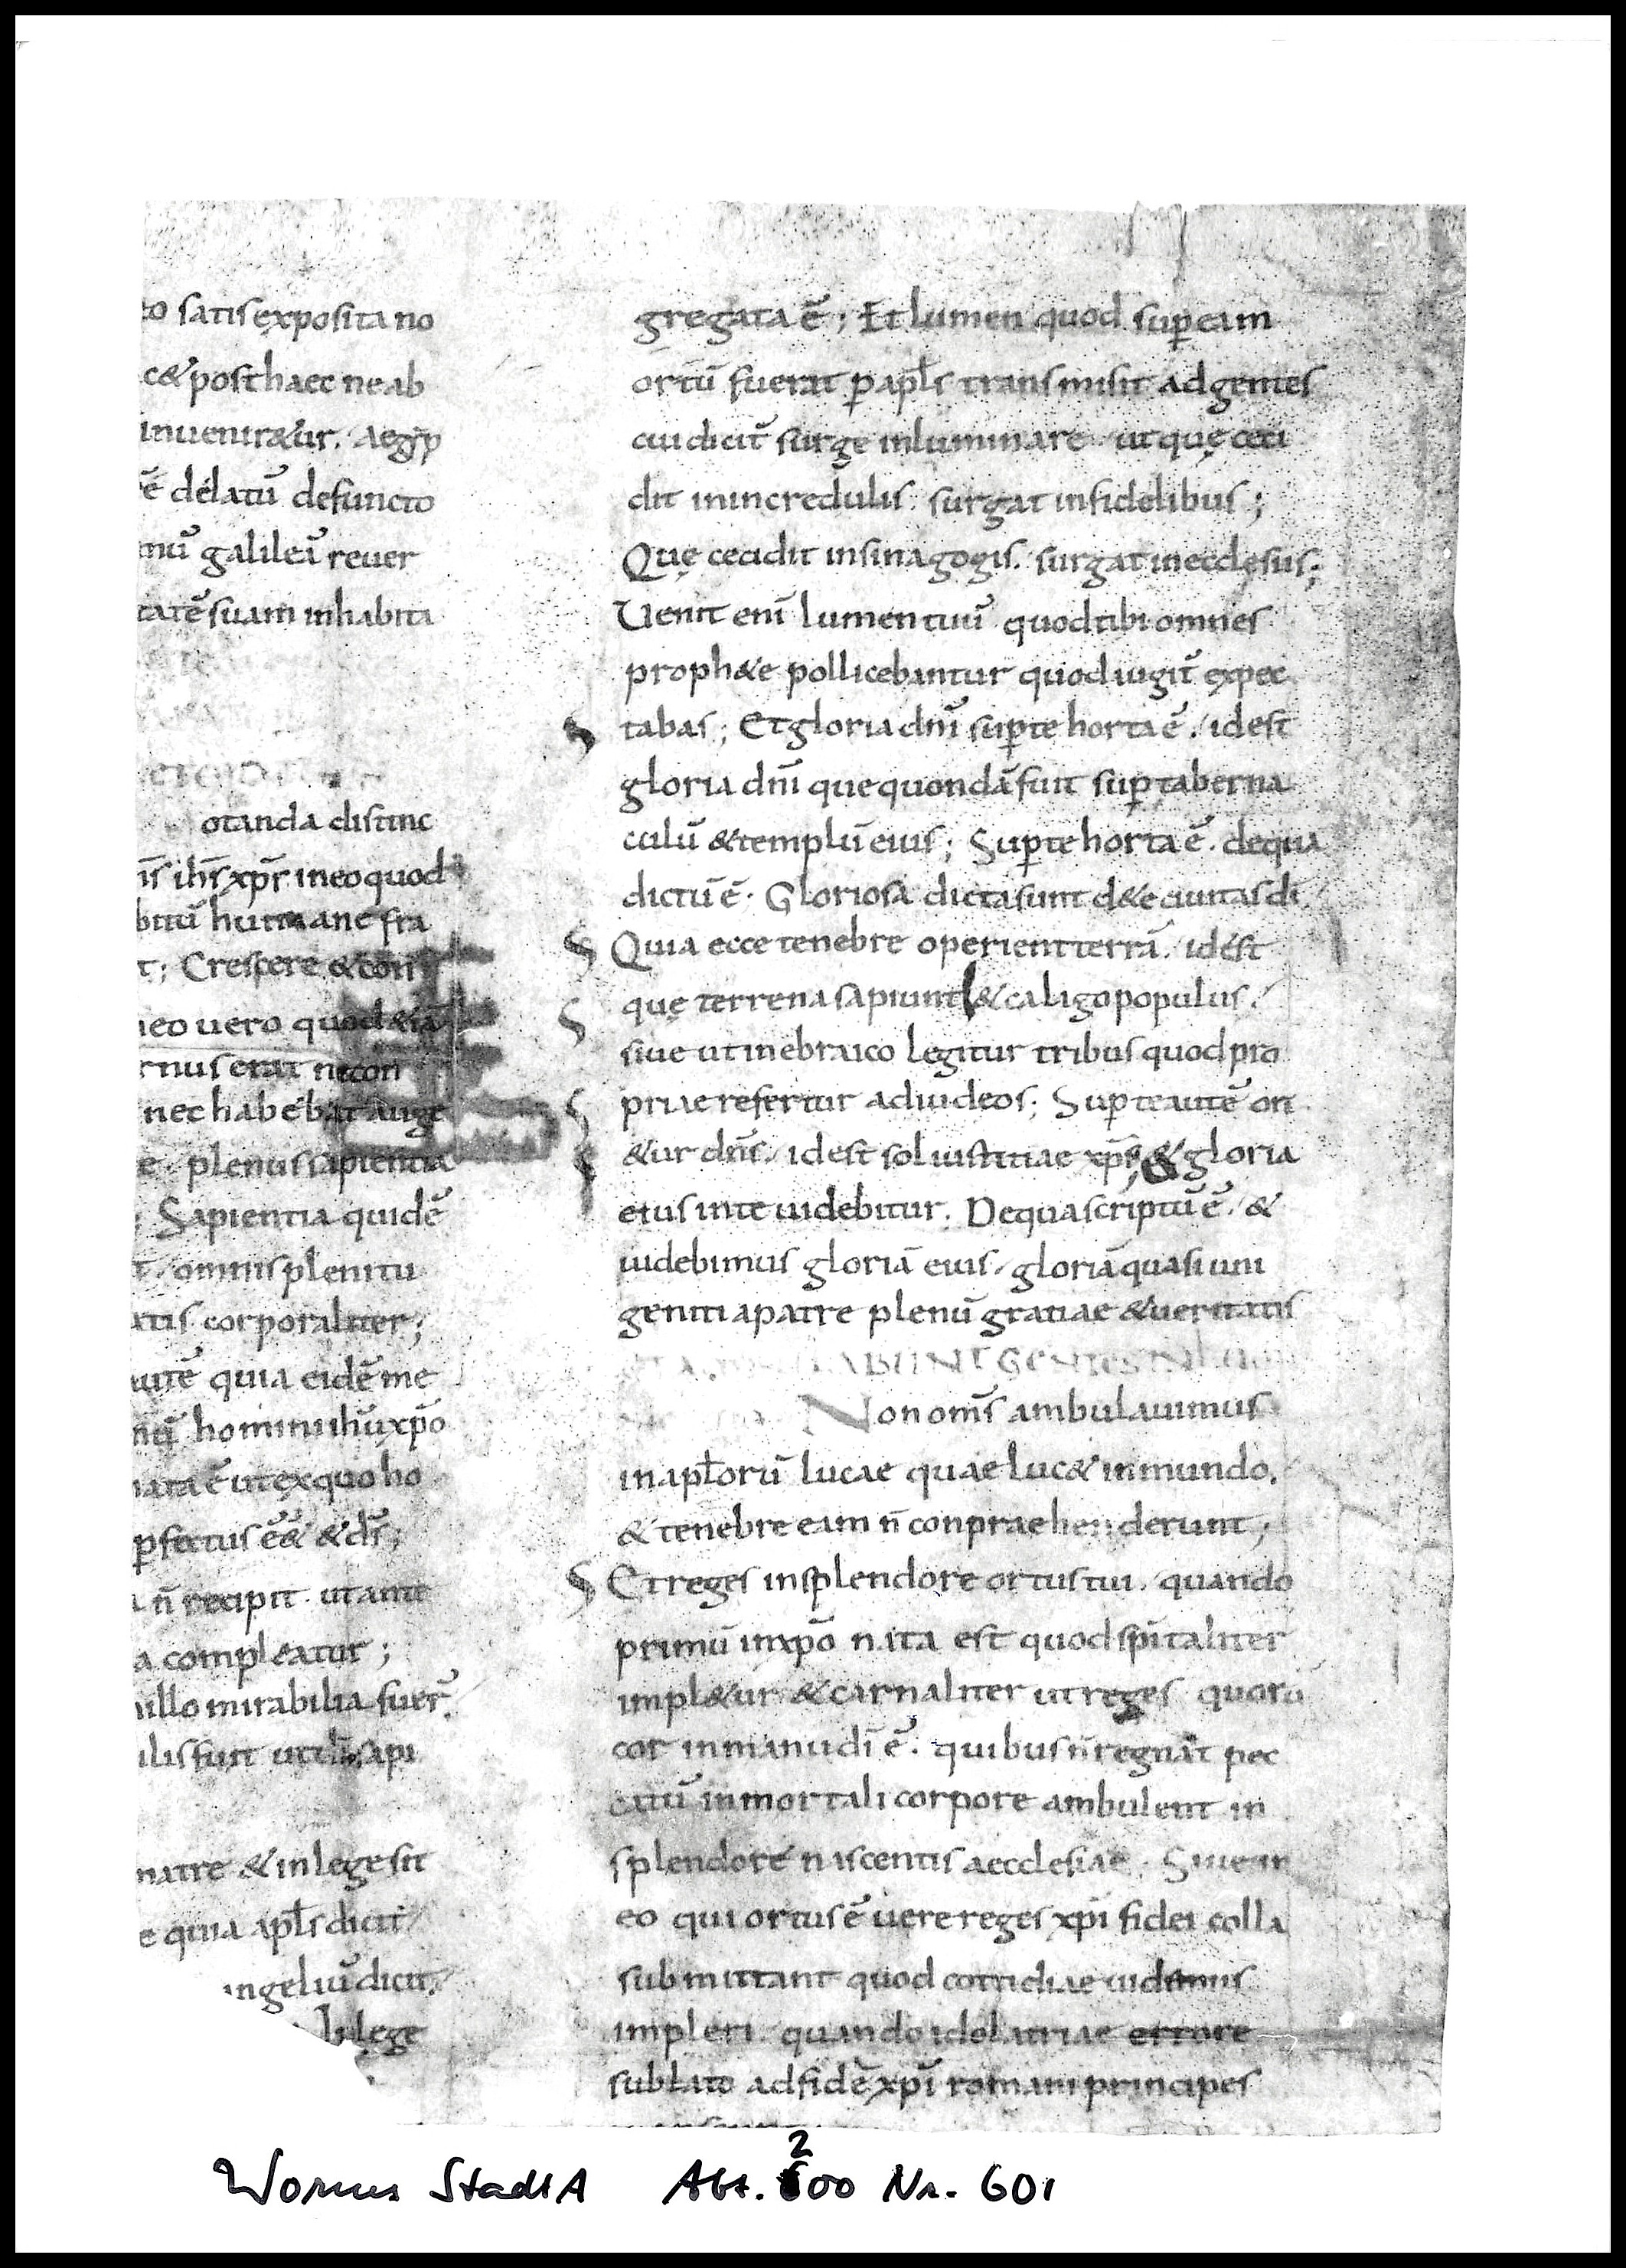 to satis exposita no
c& post haec ne ab
inuenir&ur. Aegyp
ē delatū defuncto
mū galileā reuer
tatē suam inhabita
otanda distinc
n̄s ih̄s xp̄s in eo quod
bitū humane fra
t; Crescere & con
neo uero quod &iā
rnus erat nec con
nec habebat auge
e plenus sapientia
: Sapientia quidē
t omnis plenitu
atis corporaliter;
autē quia eidē me
homini ihū xp̄o
nata ē ut ex quo ho
pfectus ēē & & d̄s;
a n̄ recipit ut ante
a compleatur;
nillo mirabilia fuer̄.
ilis fuit sapi
matre & in lege sit
e quia apl̄s dicit
angeliū dicit.
lege
gregata ē; Et lumen quod sup eam
ortū fuerat p apl̄s transmisit ad gentes
cui dicit̄ surge inluminare ut quę ceci
dit in incredulis surgat in fidelibus;
Quę cecidit in sinagogis. surgat in ecclesiis;
Uenit enī lumen tuū quod tibi omnes
proph&e pollicebantur quod iugit̄ expec
tabas; Et gloria dn̄i sup te horta ē. id est
gloria dn̄i que quondā fuit sup taberna
culū & templū eius; Sup te horta ē. de qua
dictū ē. Gloriosa dicta sunt d& e ciuitas dī.
Quia ecce tenebre operient terrā. id est
quę terrena sapiunt & caligo populus.
siue ut in ebraico legitur tribus quod pro
priae refertur ad iudeos; Sup te autē ori
&ur dn̄s. id est sol iustitiae xp̄s, & gloria
eius in te uidebitur. De qua scriptū ē. &
uidebimus gloriā eius. gloriā quasi uni
geniti a patre plenū gratiae & ueritatis
ABUNT GENTES IN LU
Non om̄s ambulauimus
in apl̄orū lucae quae luc& in mundo.
& tenebre eam n̄ conpraehenderunt;
Et reges in splendore ortus tui. quando
primū in xp̄o nata est quod sp̄italiter
impl&ur & carnaliter ut reges quorū
cor in manu dī ē. quibus n̄ regnat pec
catū in mortali corpore ambulent in
splendore nascentis aecclesiae. Siue in
eo qui ortus ē uere reges xp̄i fidei colla
submittant quod cottidiae uidemus
impleri. quando idolatriae errore
sublato ad fidē xp̄i romani principes
Worms StadtA Abt. 200 Nr. 601
2